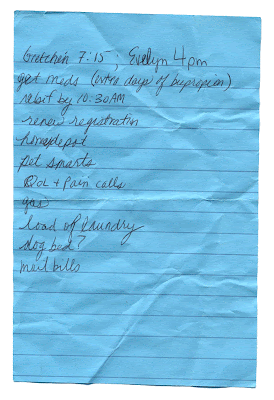 Gretchen 7:15; Evelyn 4pm
get meds (extra days of bupropion)
rabit by 10:30AM
renew registration
homedepot
pet smarts
QoL + Pain calls
gas
load of laundry
dog bed?
mail bills